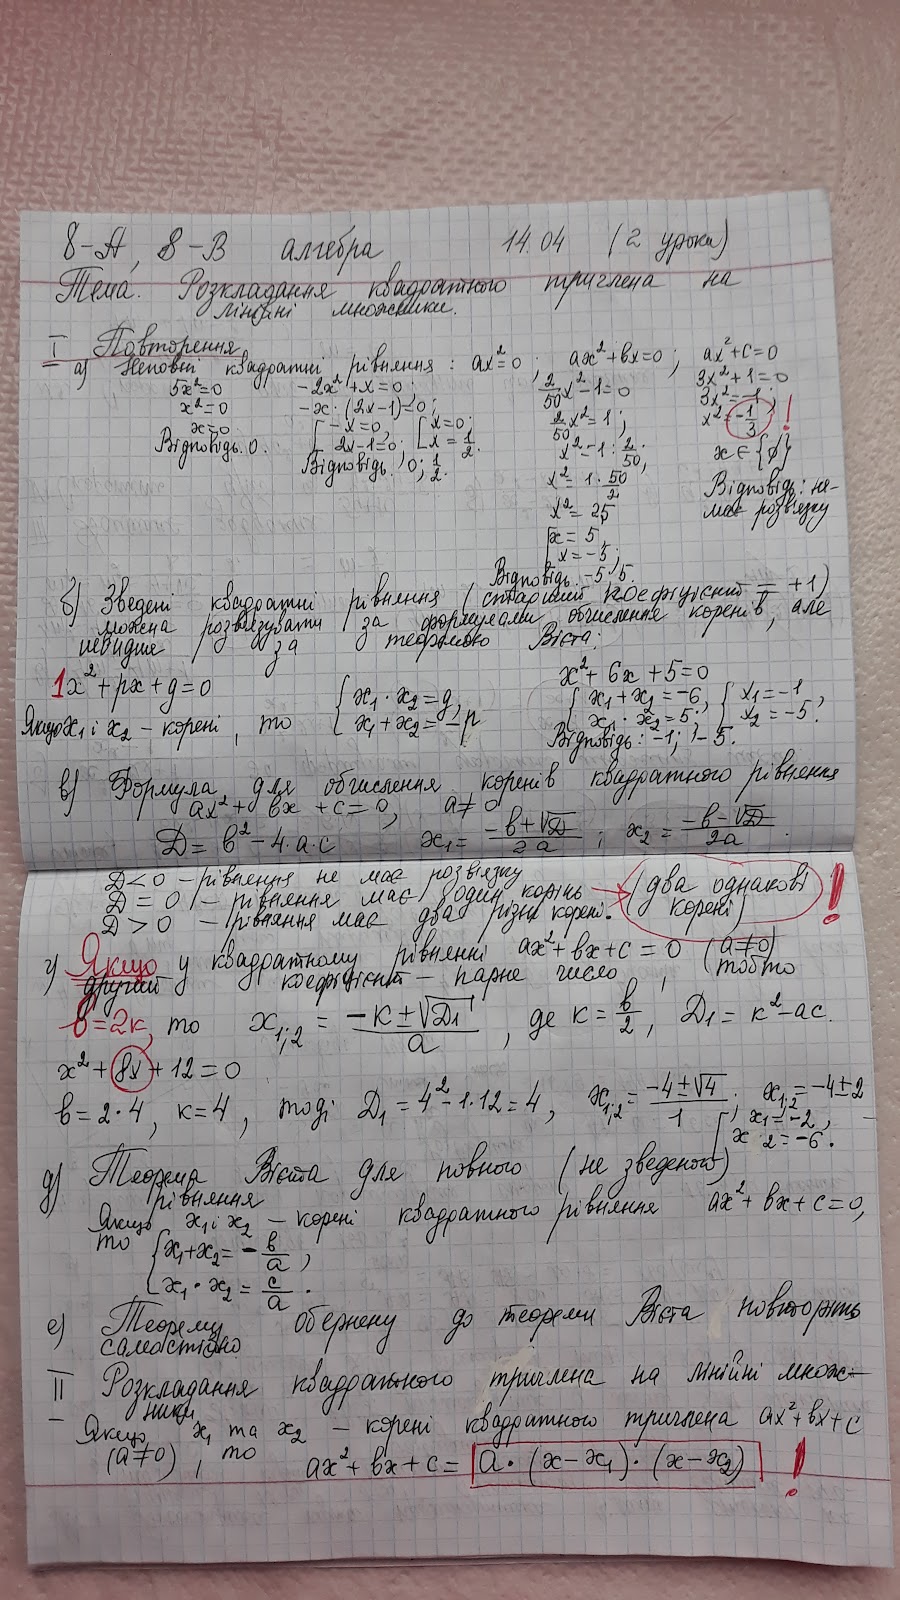 8-А, 8-В алгебра 14.04 (2 уроки)
Тема. Розкладання квадратного тричлена на
лінійні множники.
I Повторення
а) Неповні квадратні рівняння: ax²=0; ax²+bx=0; ax²+c=0
5x²=0
x²=0
x=0
Відповідь. 0.
-2x²+x=0;
-x·(2x-1)=0;
[-x=0, 2x-1=0; [x=0; x=1/2.
Відповідь. 0; 1/2.
2/50x²-1=0
2/50x²=1;
x²=1:2/50;
x²=1·50/2
x²=25
[x=5, x=-5;
Відповідь. -5; 5.
3x²+1=0
3x²=-1;
x²=-1/3 !
x∈{∅}
Відповідь: не-
має розв'язку
б) Зведені квадратні рівняння (старший коефіцієнт = +1)
можна розв'язувати за формулами обчислення коренів, але
швидше за теоремою Вієта:
1x²+px+q=0
Якщо x₁ і x₂ – корені, то {x₁·x₂=q, x₁+x₂=-p
x²+6x+5=0
{x₁+x₂=-6, x₁·x₂=5; {x₁=-1 x₂=-5.
Відповідь: -1; -5.
в) Формула для обчислення коренів квадратного рівняння
ax²+bx+c=0, a≠0
D=b²-4·a·c x₁=(-b+√D)/2a; x₂=(-b-√D)/2a.
D<0 – рівняння не має розв'язку
D=0 – рівняння має один корінь → (два однакові корені) !
D>0 – рівняння має два різні корені.
г) Якщо у квадратному рівнянні ax²+bx+c=0 (a≠0)
другий коефіцієнт – парне число, тобто
b=2k, то x₁;₂=(-k±√D₁)/a, де k=b/2, D₁=k²-ac.
x²+8x+12=0
b=2·4, k=4, тоді D₁=4²-1·12=4, x₁;₂=(-4±√4)/1; x₁;₂=-4±2
[x₁=-2, x₂=-6.
д) Теорема Вієта для повного (не зведеного)
рівняння
Якщо x₁ і x₂ – корені квадратного рівняння ax²+bx+c=0,
то {x₁+x₂=-b/a, x₁·x₂=c/a.
е) Теорему обернену до теореми Вієта повторить
самостійно.
II Розкладання квадратного тричлена на лінійні множ-
ники
Якщо x₁ та x₂ – корені квадратного тричлена ax²+bx+c
(a≠0), то ax²+bx+c=a·(x-x₁)·(x-x₂) !